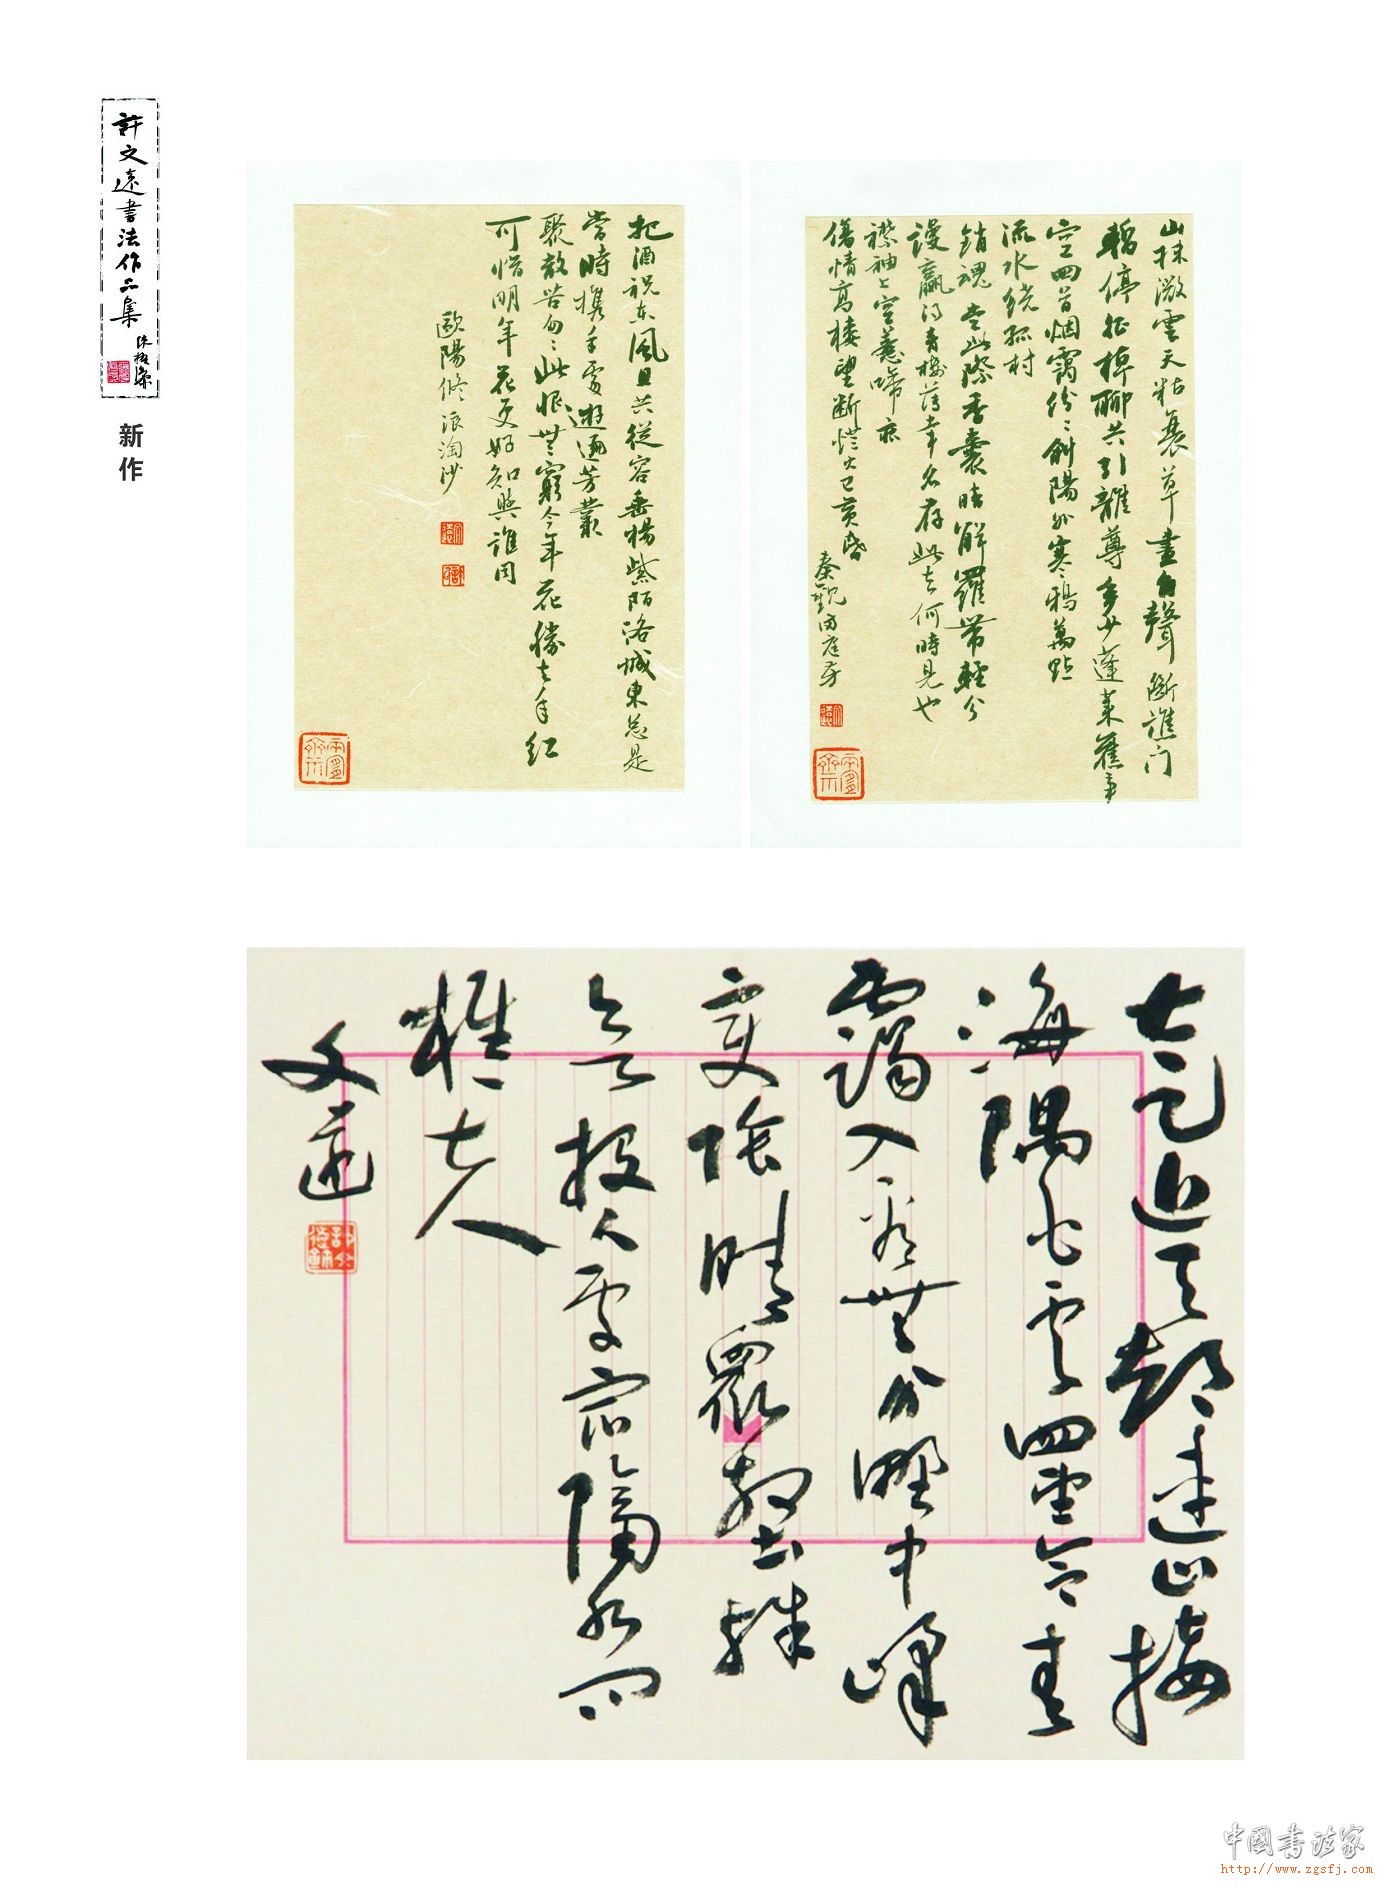 許文遠書法作品集
新作
山抹微雲天粘衰草畫角聲斷譙門
暫停征棹聊共引離尊多少蓬萊舊事
空回首烟靄紛紛斜陽外寒鴉萬點
流水繞孤村
銷魂當此際香囊暗解羅帶輕分
謾贏得青樓薄幸名存此去何時見也
襟袖上空惹啼痕
傷情高樓望斷燈火已黃昏
秦觀滿庭芳
把酒祝東風且共從容垂楊紫陌洛城東總是
當時攜手處遊遍芳叢
聚散苦匆匆此恨無窮今年花勝去年紅
可惜明年花更好知與誰同
歐陽修浪淘沙
太乙近天都連山接
海隅白雲迴望合青
靄入看無分野中峰
變陰晴眾壑殊
欲投人處宿隔水問
樵夫
文遠
中国书法家
http://www.zgsfj.com